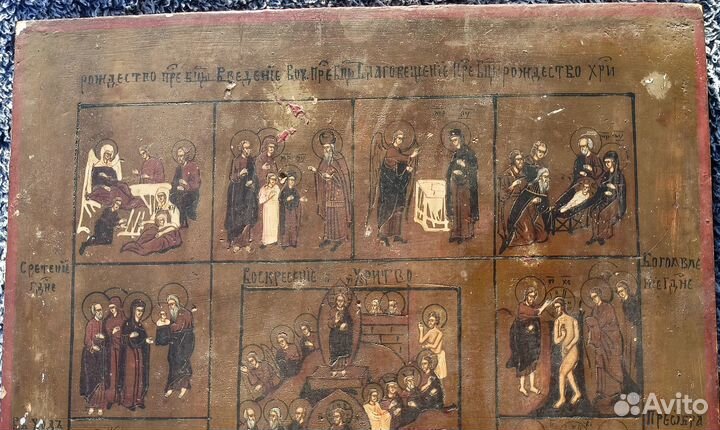 РОЖДЕСТВО ПРЕ БЦЫ ВВЕДЕНИЕ ВОХ ПРЕ БЦЫ БЛАГОВЕЩЕНИЕ ПРЕ БЦЫ РОЖДЕСТВО ХРИ
СРЕТЕНИЕ
ГДНЕ
ВОСКРЕСЕНИЕ ХРИТВО
БОГОЯВЛЕ
НИЕ ГДНЕ
ПРЕОБРА
Avito